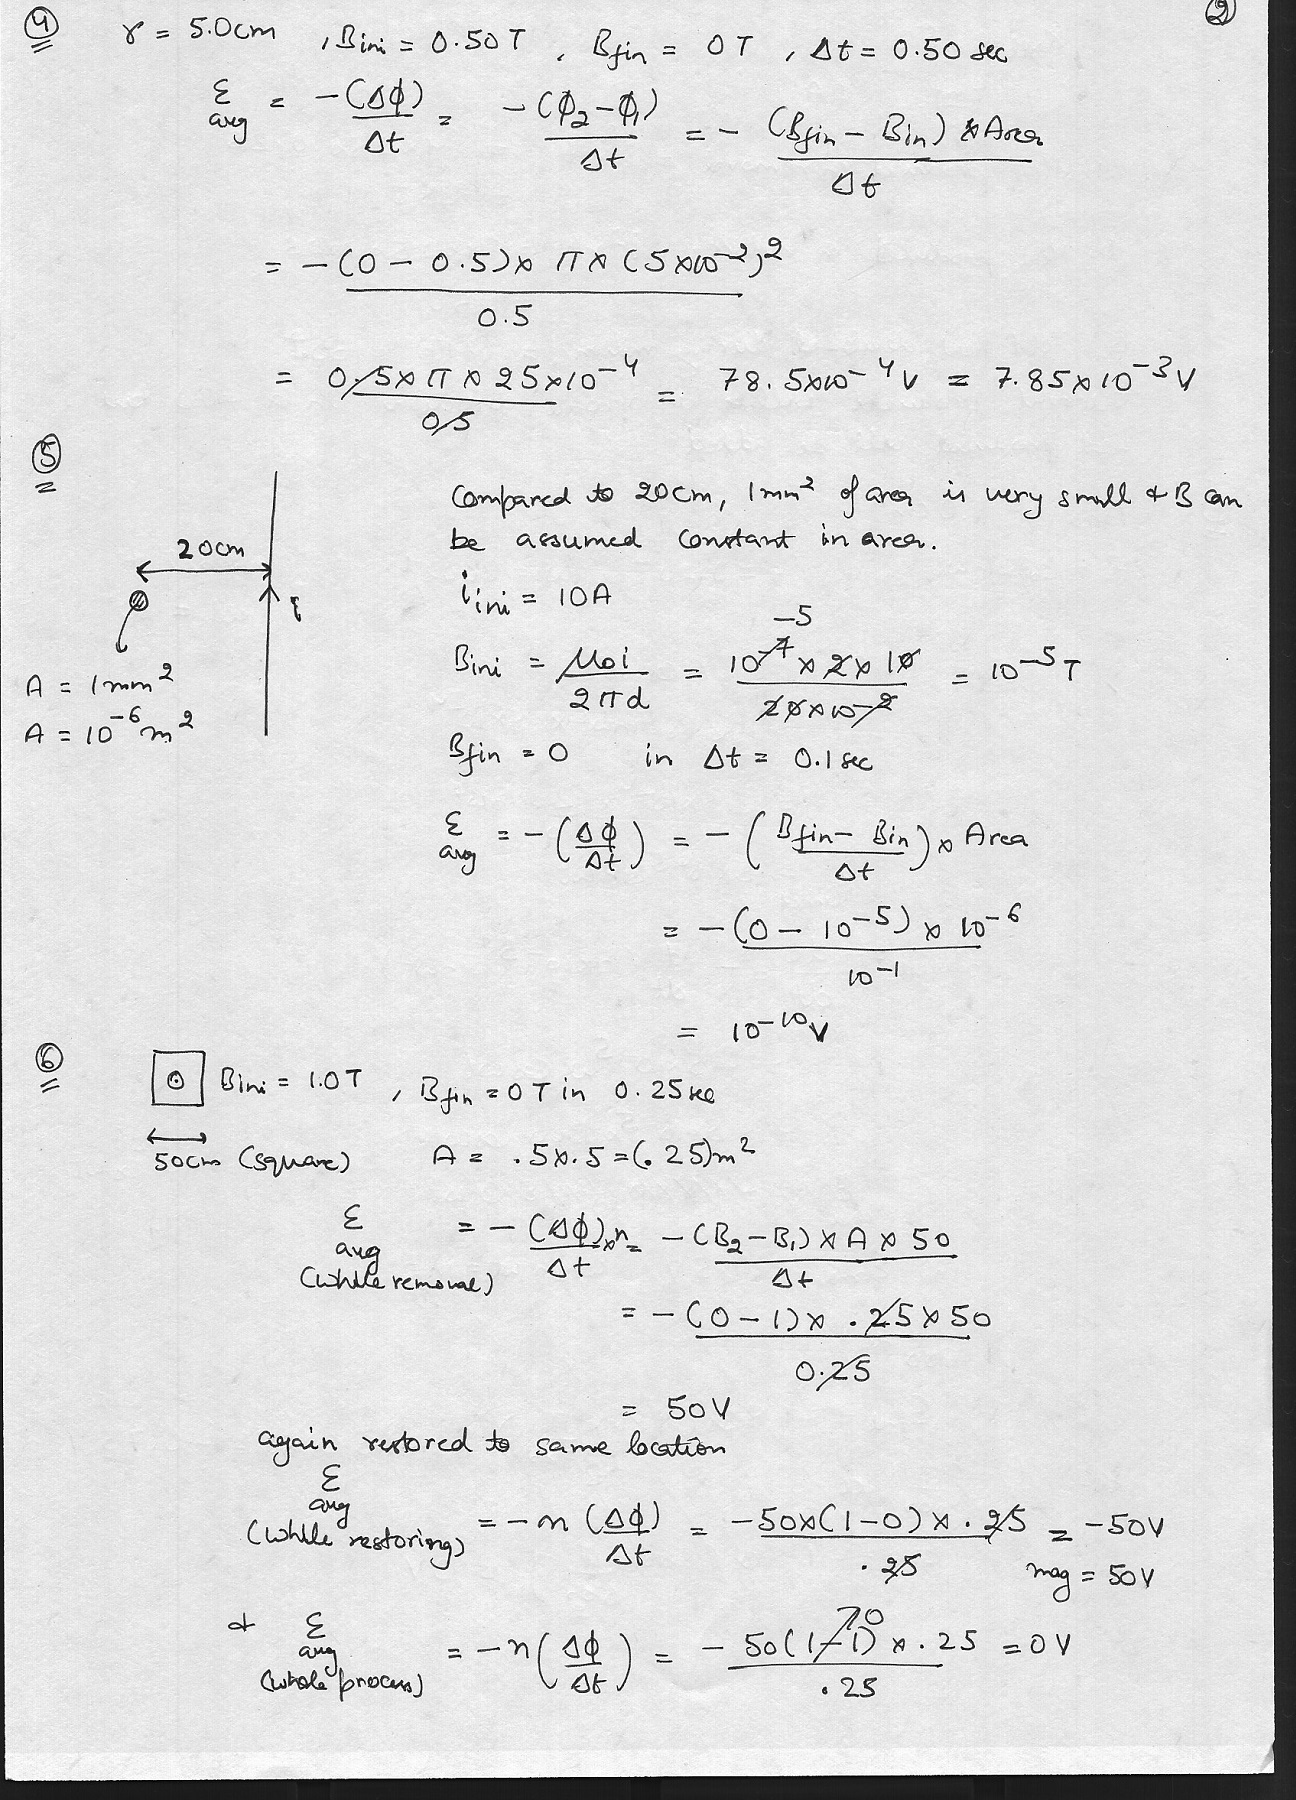 ②
④ r = 5.0cm , Bini = 0.50T , Bfin = 0T , Δt = 0.50 sec
ε avg = -(Δϕ)/Δt = -(ϕ2-ϕ1)/Δt = - (Bfin - Bin) × Area/Δt
= -(0 - 0.5) × π × (5×10^-2)^2/0.5
= 0.5×π×25×10^-4/0.5 = 78.5×10^-4 V = 7.85×10^-3 V
⑤ Compared to 20cm, 1mm^2 of area is very small & B can
be assumed constant in area.
20cm
i
A = 1mm^2
A = 10^-6 m^2
iini = 10A
Bini = μ0i/2πd = 10^-7 × 2 × 10/20×10^-2 = 10^-5 T
-5
Bfin = 0 in Δt = 0.1 sec
ε avg = -(Δϕ/Δt) = -(Bfin - Bin/Δt) × Area
= -(0 - 10^-5) × 10^-6/10^-1
= 10^-10 V
⑥ Bini = 1.0T , Bfin = 0T in 0.25 sec
50cm (square) A = .5×.5 = (.25)m^2
ε avg (while removal) = -(Δϕ)×n/Δt = -(B2-B1) × A × 50/Δt
= -(0-1) × .25 × 50/0.25
= 50V
again restored to same location
ε avg (while restoring) = -n (Δϕ)/Δt = -50×(1-0) × .25/.25 = -50V
mag = 50V
& ε avg (whole process) = -n(Δϕ/Δt) = - 50(1-1) × .25/.25 = 0V
0